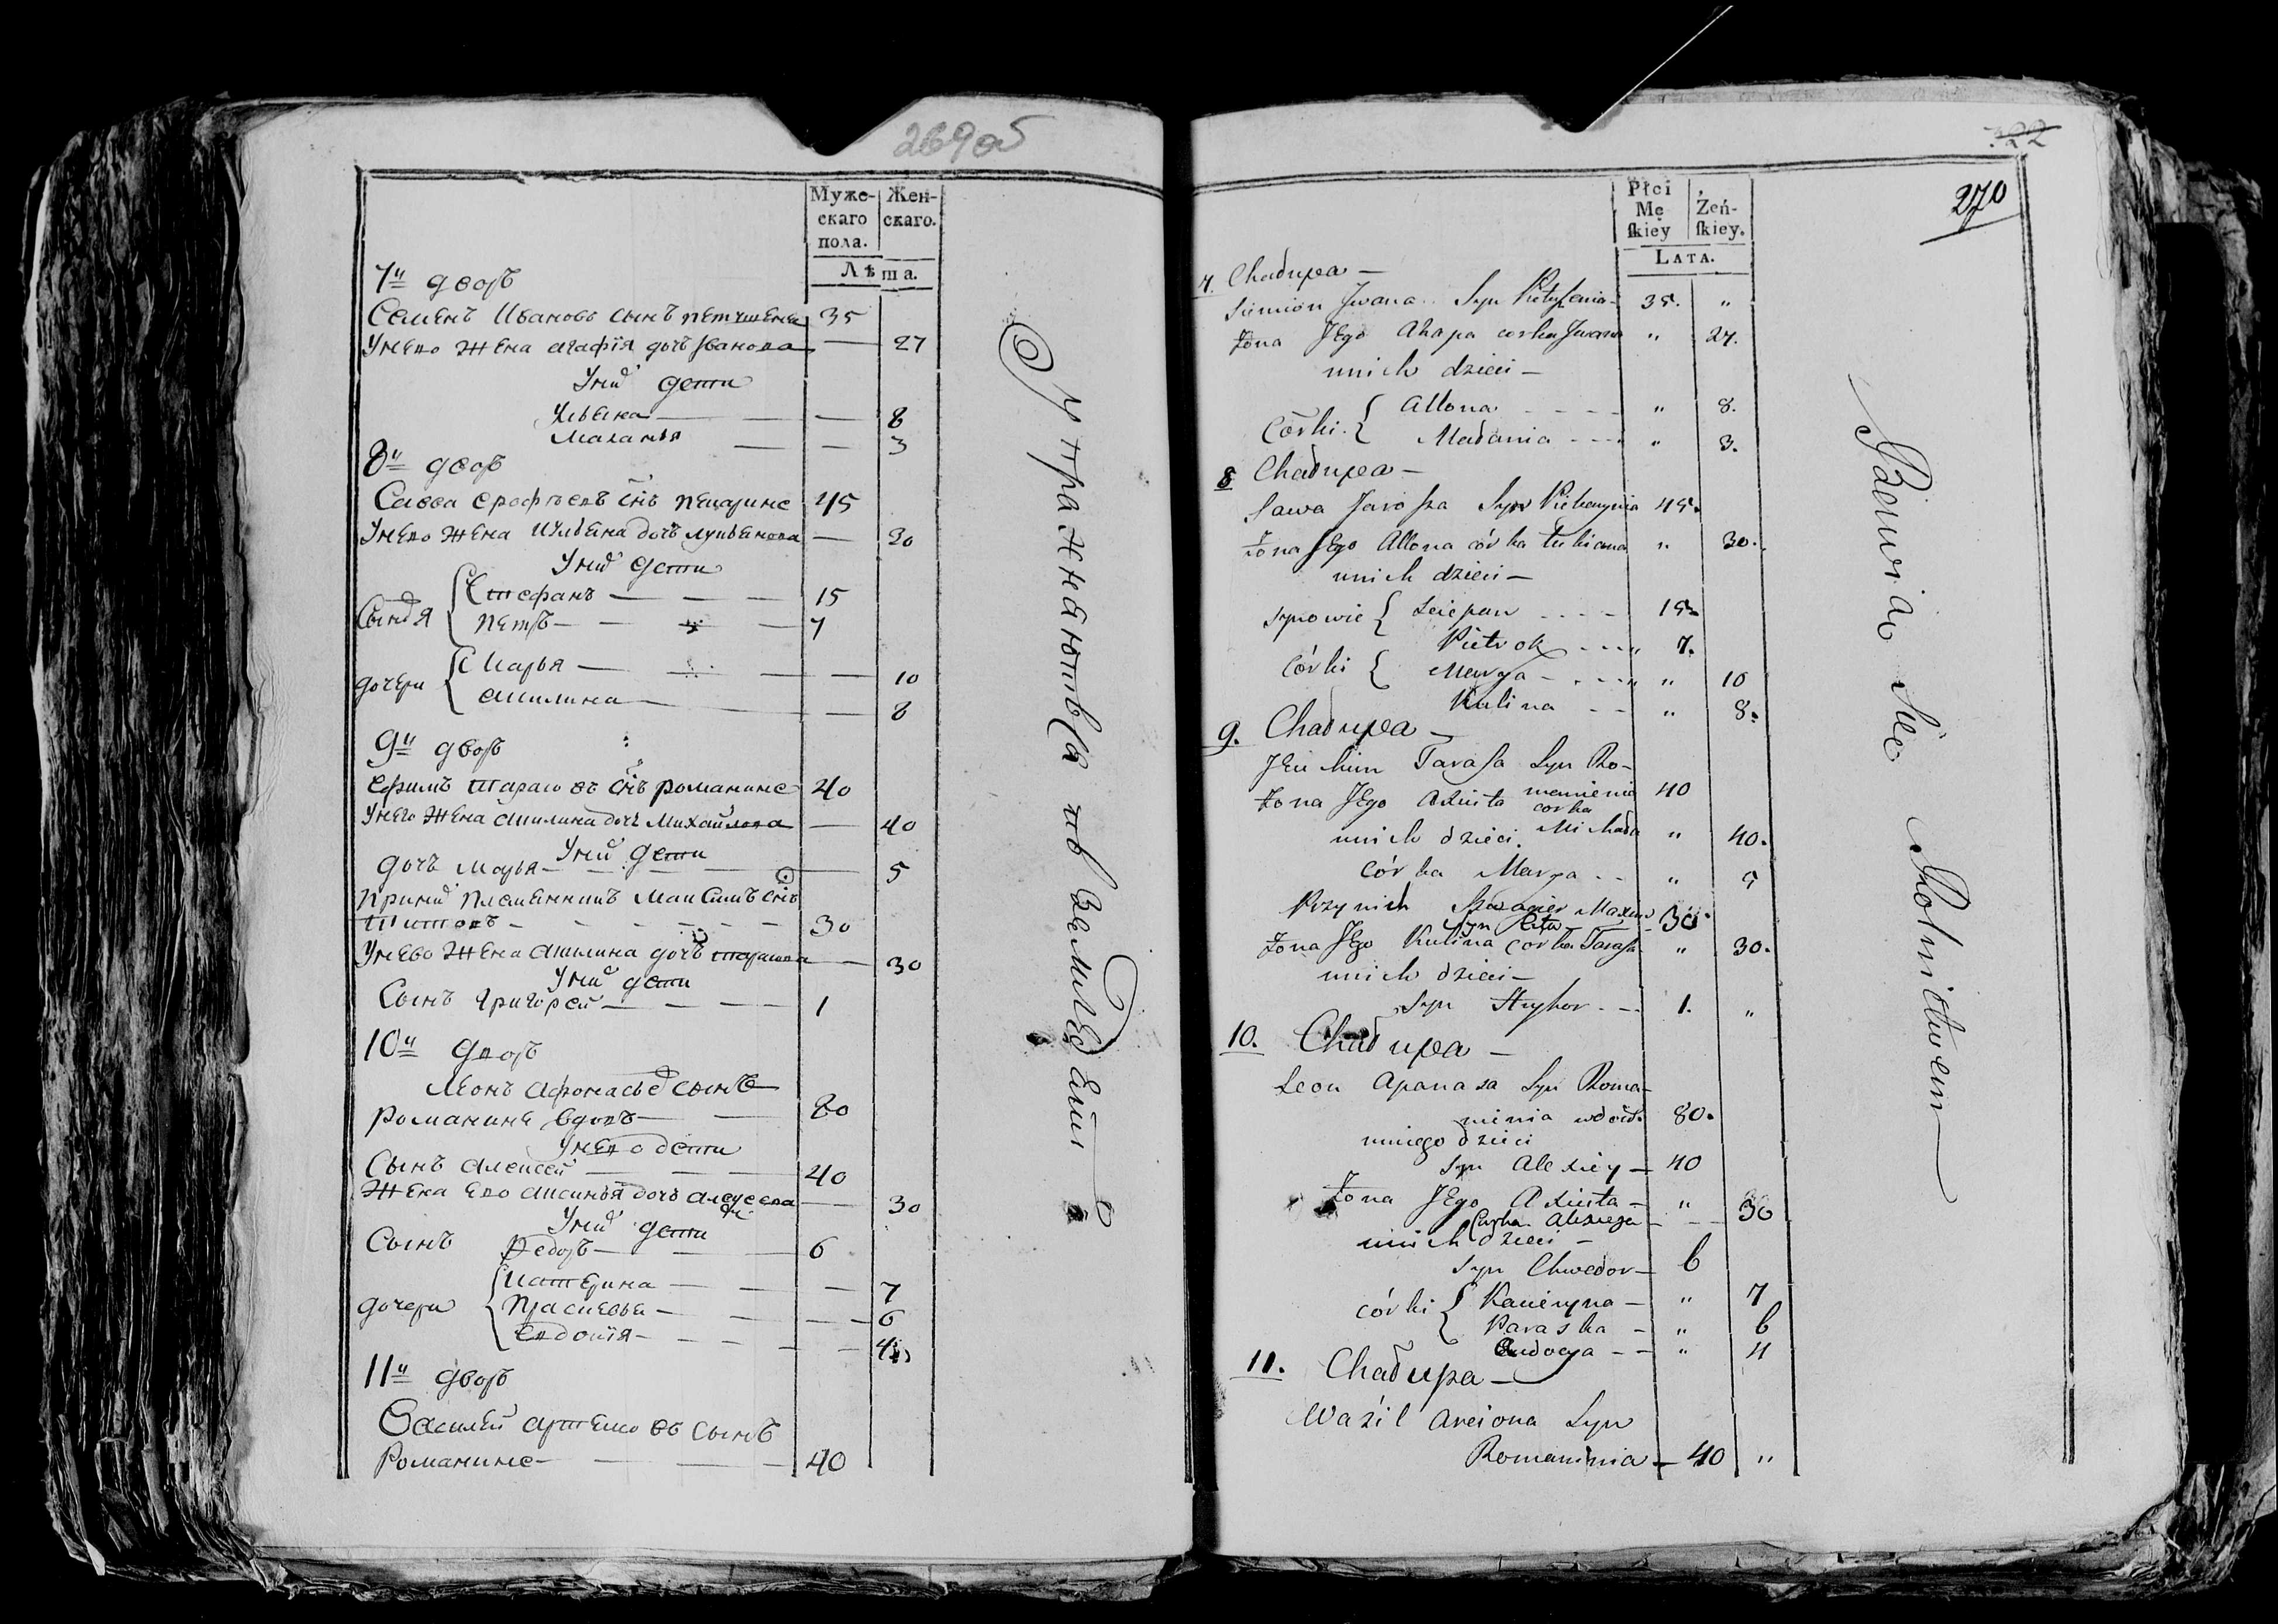 269об
Муже-
скаго
пола.
Жен-
скаго.
Лѣта.
7й дворъ
Семенъ Ивановъ сынъ петишеня 35
Унево жена агафія дочь Иванова — 27
Уних дети
Ульяна — — 8
Маланья — — 3
8й дворъ
Савва ерофѣевъ снъ 45
Унево жена Ульяна дочь лукьянова — 30
Уних дети
Сыновя
Стефанъ — — — 15
петръ — — — 7
дочери
Марья — — — 10
акилина — — 8
9й дворъ
ефимъ тарасовъ снъ романине 40
Унего жена акилина дочь Михайлова — 40
Уних дети
дочь марья — — — 5
приних племенникъ Максимъ снъ
титовъ — — — 30
Унево жена акилина дочь тарасова — 30
Уних дети
Сынъ григорей — — — 1
10й дворъ
Леонъ афонасьев сынъ
романине вдовъ — — 80
Унево дети
Сынъ алексей — — — 40
жена ево аксинья дочь алексеева — 30
Уних дети
Сынъ Федоръ — — 6
дочери
катерина — — — 7
прасковья — — — 6
евдокія — — — 4
11й дворъ
Василей артемовъ сынъ
Романине — — 40
Упражняються въ земледелии
322
270
Płci
Mę
skiey
Żeń-
skiey.
LATA.
7. Chałupa —
Siemion Jwana Syn 35. "
Żona JEgo Ahapa corka Jwana " 27.
unich dzieci —
Córki. Allona - - - - " 8.
Małania - - - - " 3.
8 Chałupa —
Sawa Jarosza Syn 45.
Żona JEgo Allona córka Łukiana " 30.
unich dzieci —
synowie Sciepan - - - - 15
Pietrok - - - - 7.
Córki Marya - - - - " 10
Kulina - - " 8.
9. Chałupa —
JEuchim Tarasa Syn Ro-
manienia 40
Żona JEgo Axiuta corka
Michała " 40.
unich dzieci.
Córka Marya - - " 5
Przynich Maxim
Syn Cita 30
Żona JEgo Kulina corka Tarasa " 30.
unich dzieci —
Syn Hryhor - - 1. "
10. Chałupa —
Leon Apanasa Syn Roma-
ninia wdow. 80.
uniego dzieci
Syn Alexiey — 40
Żona JEgo Axiuta — " 30
Corka Alexieja
unich dzieci —
Syn Chwedor — 6
córki Kacieryna — " 7
Paraska — " 6
Eudocya - - " 4
11. Chałupa —
Wazil Arciona Syn
Romaninia — 40 "
Bawią Się Rolnictwem